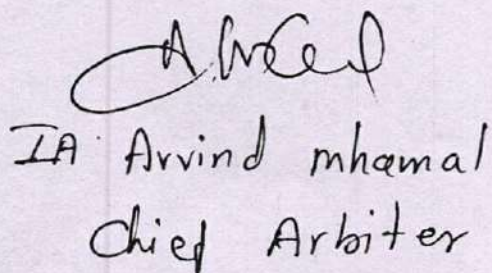 IA Arvind mhamal
Chief Arbiter